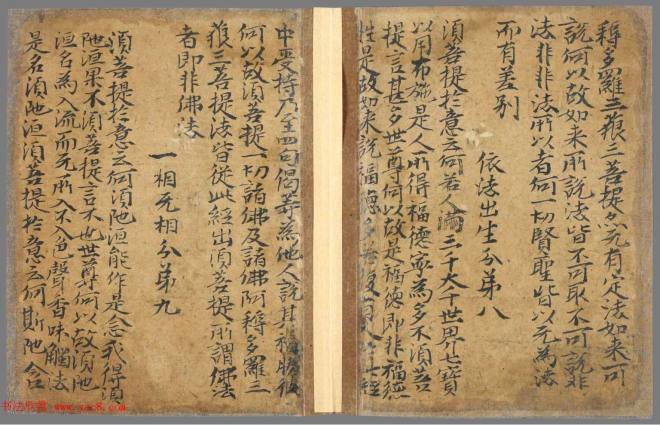 耨多羅三藐三菩提忽无有定法如来可
說何以故如来所說法皆不可取不可說非
法非非法所以者何一切賢聖皆以无為法
而有差別
依法出生分第八
須菩提扵意云何若人滿三千大千世界七寳
以用布施是人所得福德寧為多不須菩
提言甚多世尊何以故是福德即非福德
性是故如来說福德多若復有人扵此經
中受持乃至四句偈等為他人說其福勝彼
何以故須菩提一切諸佛及諸佛阿耨多羅三
藐三菩提法皆従此經出須菩提所謂佛法
者即非佛法
一相无相分第九
須菩提扵意云何須陁洹能作是念我得須
陁洹果不須菩提言不世尊何以故須陁
洹名為入流而无所入不入色聲香味觸法
是名須陁洹須菩提扵意云何斯陁含